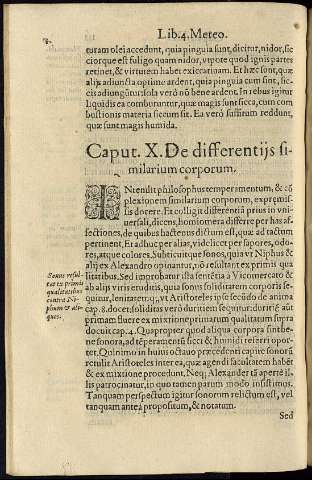 Lib.4.Meteo.
turam olei accedunt, quia pinguia sunt, dicitur, nidor, sic
cior que est fuligo quam nidor, vtpote quod ignis partes
retinet, & virtutem habet exiccatiuam. Et hæc sunt, quæ
alijs adiuncta optime ardent, quia pinguia cum sint, sic-
cis adiungūtur: sola verò nū bene ardent. In rebus igitur
liquidis ea comburuntur, quæ magis sunt sicca, cum com
bustionis materia siccum sit. Ea verò suffitum reddunt,
quæ sunt magis humida.
Caput. X. De differentijs si-
milarium corporum.
INtendit philosophus temperamentum, & cō
plexionem similarium corporum, ex præmis-
sis docere. Ea colligit differentiā prius in vni-
uersali, dicens, homiomera differre per has af-
fectiones, de quibus hactenus dictum est, quæ ad tactum
pertinent, Et adhuc per alias, videlicet per sapores, odo-
res, atque colores. Subticuitque sonos, quia vt Niphus &
alij ex Alexandro opinantur, nō resultant ex primis qua
litatibus. Sed improbatur ista sentētia à Vicomercato &
ab alijs viris eruditis, quia sonus soliditatem corporis se-
quitur, lenitatemque, vt Aristoteles ipse secūdo de anima
cap. 8. docet: soliditas verò duritiem sequitur: durities aūt
primam fluere ex mixtione primarum qualitatum supra
docuit cap. 4. Quapropter quod aliqua corpora sint be-
ne sonora, ad temperamentū sicci & humidi referri opor-
tet, Quinimo in huius octauo præcedenti capite sonorū
retulit Aristoteles inter ea, quæ agendi facultatem habēt
& ex mixtione procedunt. Neque Alexander tā apertè il-
lis patrocinatur, in quo tamen parum modò insistimus.
Tanquam perspectum igitur sonorum relictum est, vel
tanquam antea propositum, & notatum.
Sed
Sonus resul-
tat ex primis
qualitatibus
contra Ni-
phum & ali-
ques.